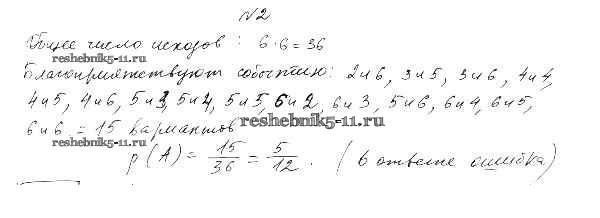 №2
Общее число исходов: 6·6=36
reshebnik5-11.ru
Благоприятствуют событию: 2и6, 3и5, 3и6, 4и4,
4и5, 4и6, 5и3, 5и4, 5и5, 6и2, 6и3, 5и6, 6и4, 6и5,
6и6 = 15 вариантов
reshebnik5-11.ru
reshebnik5-11.ru
p(A) = 15/36 = 5/12. (в ответе ошибка)